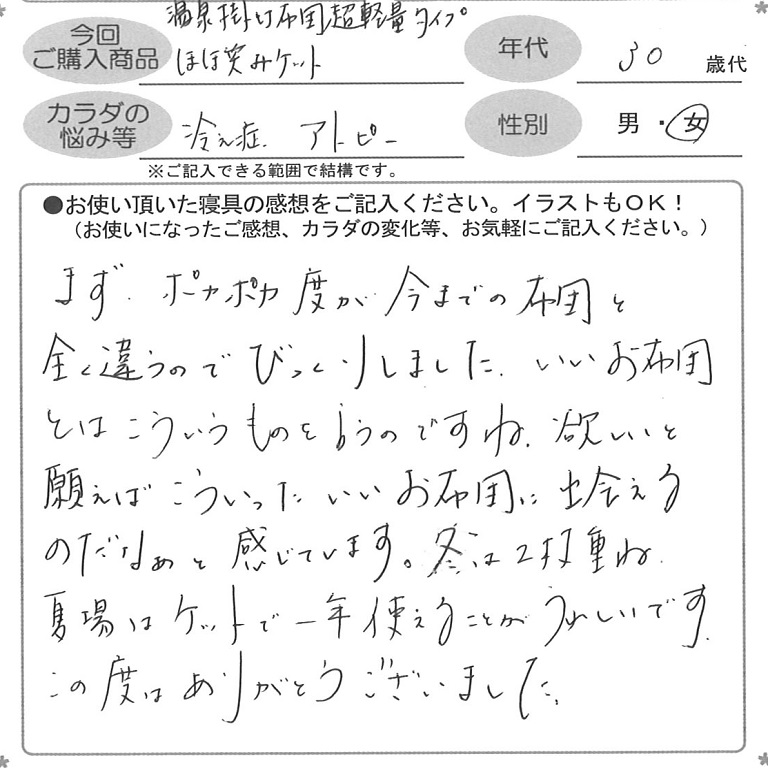 今回
ご購入商品
温泉掛け布団超軽量タイプ
ほほ笑みケット
年代
30 歳代
カラダの
悩み等
冷え症. アトピー
性別
男・女
※ご記入できる範囲で結構です。
●お使い頂いた寝具の感想をご記入ください。イラストもOK!
(お使いになったご感想、カラダの変化等、お気軽にご記入ください。)
まず、ポカポカ度が今までの布団と
全く違うのでびっくりしました. いいお布団
とはこういうものを言うのですね. 欲しいと
願えばこういったいいお布団に出会える
のだなぁと感じています。冬は2枚重ね.
夏場はケットで一年使えることがうれしいです.
この度はありがとうございました.